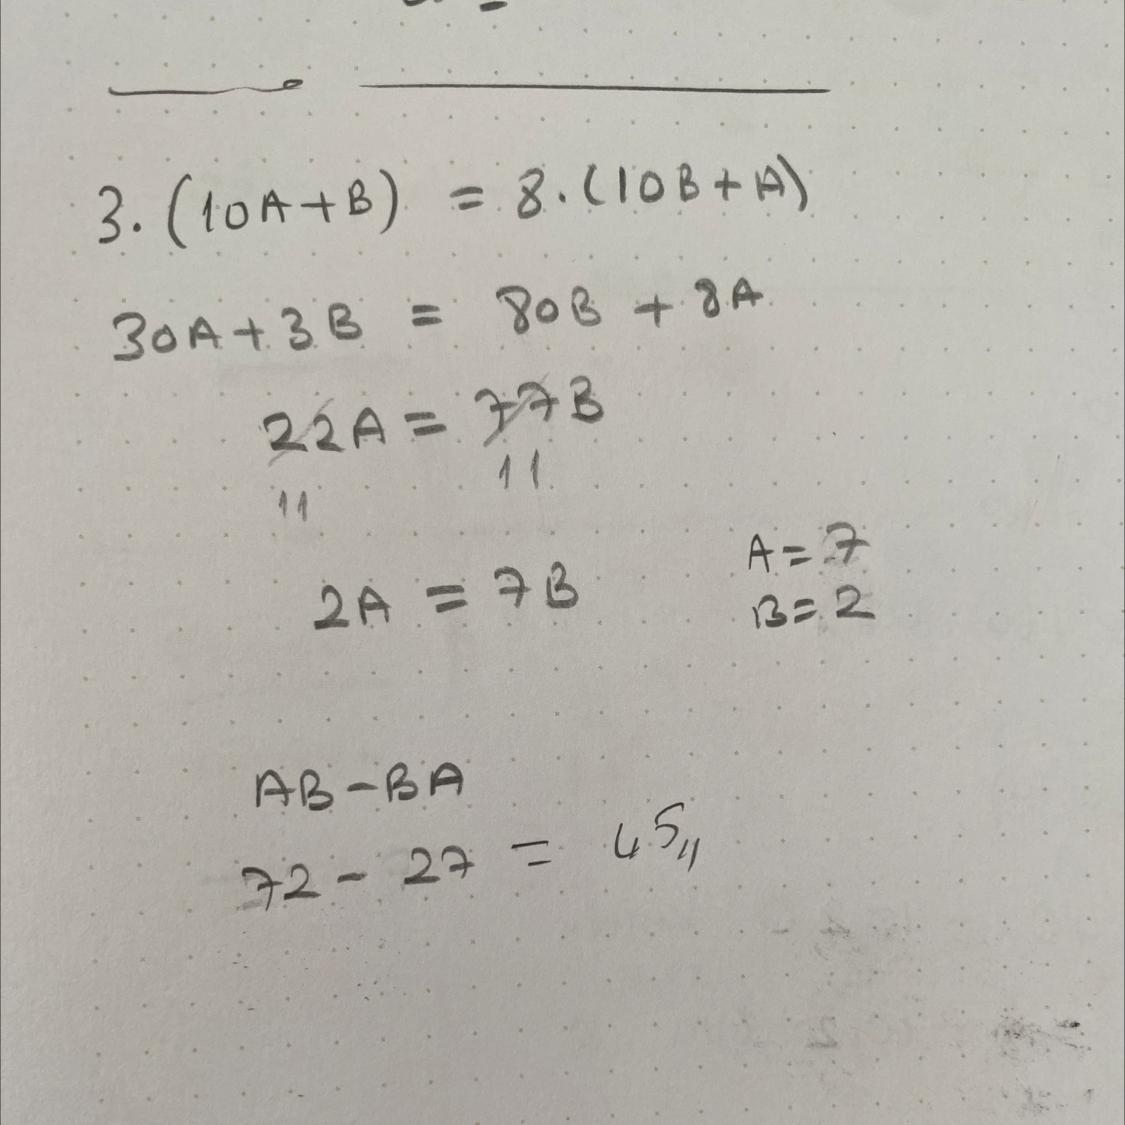 3.(10A+B) = 8.(10B+A)
30A+3B = 80B + 8A
22A = 77B
11 11
2A = 7B
A=7
B=2
AB-BA
72 - 27 = 45,,